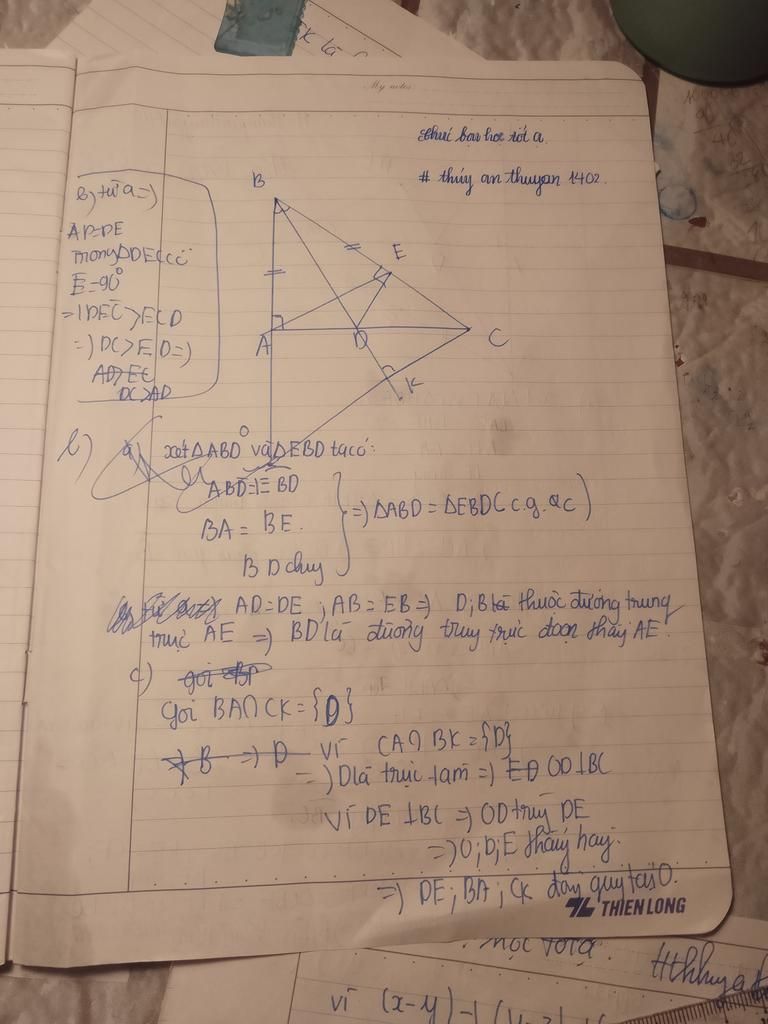 My notes
chúc bạn học tốt ạ.
# thúy an thuyan 1402.
B) từ a =)
AD=DE
trong ΔDEC có
E=90°
=) DEC > ECD
=) DC > ED =)
AD > EC
DC > AD
B
E
A
D
C
K
O
b)
a) xét ΔABD và ΔEBD ta có:
ABD = EBD
BA = BE.
BD chuy
=) ΔABD = ΔEBD (c.g.c)
AD=DE ; AB = EB =) D;B là thuộc đường trung
trực AE =) BD là đường truy trực đoạn thẳy AE.
c) gọi BD
Gọi BA∩CK = {D}
B =) D vì CA∩BK = {D}
=) D là trực tâm =) ED OD⊥BC
Vì DE⊥BC =) OD trùy DE
=) O;D;E thẳy hay.
=) DE; BA; CK đồy quy tại O.
THIENLONG
học tốt ạ.
vì (x-y)